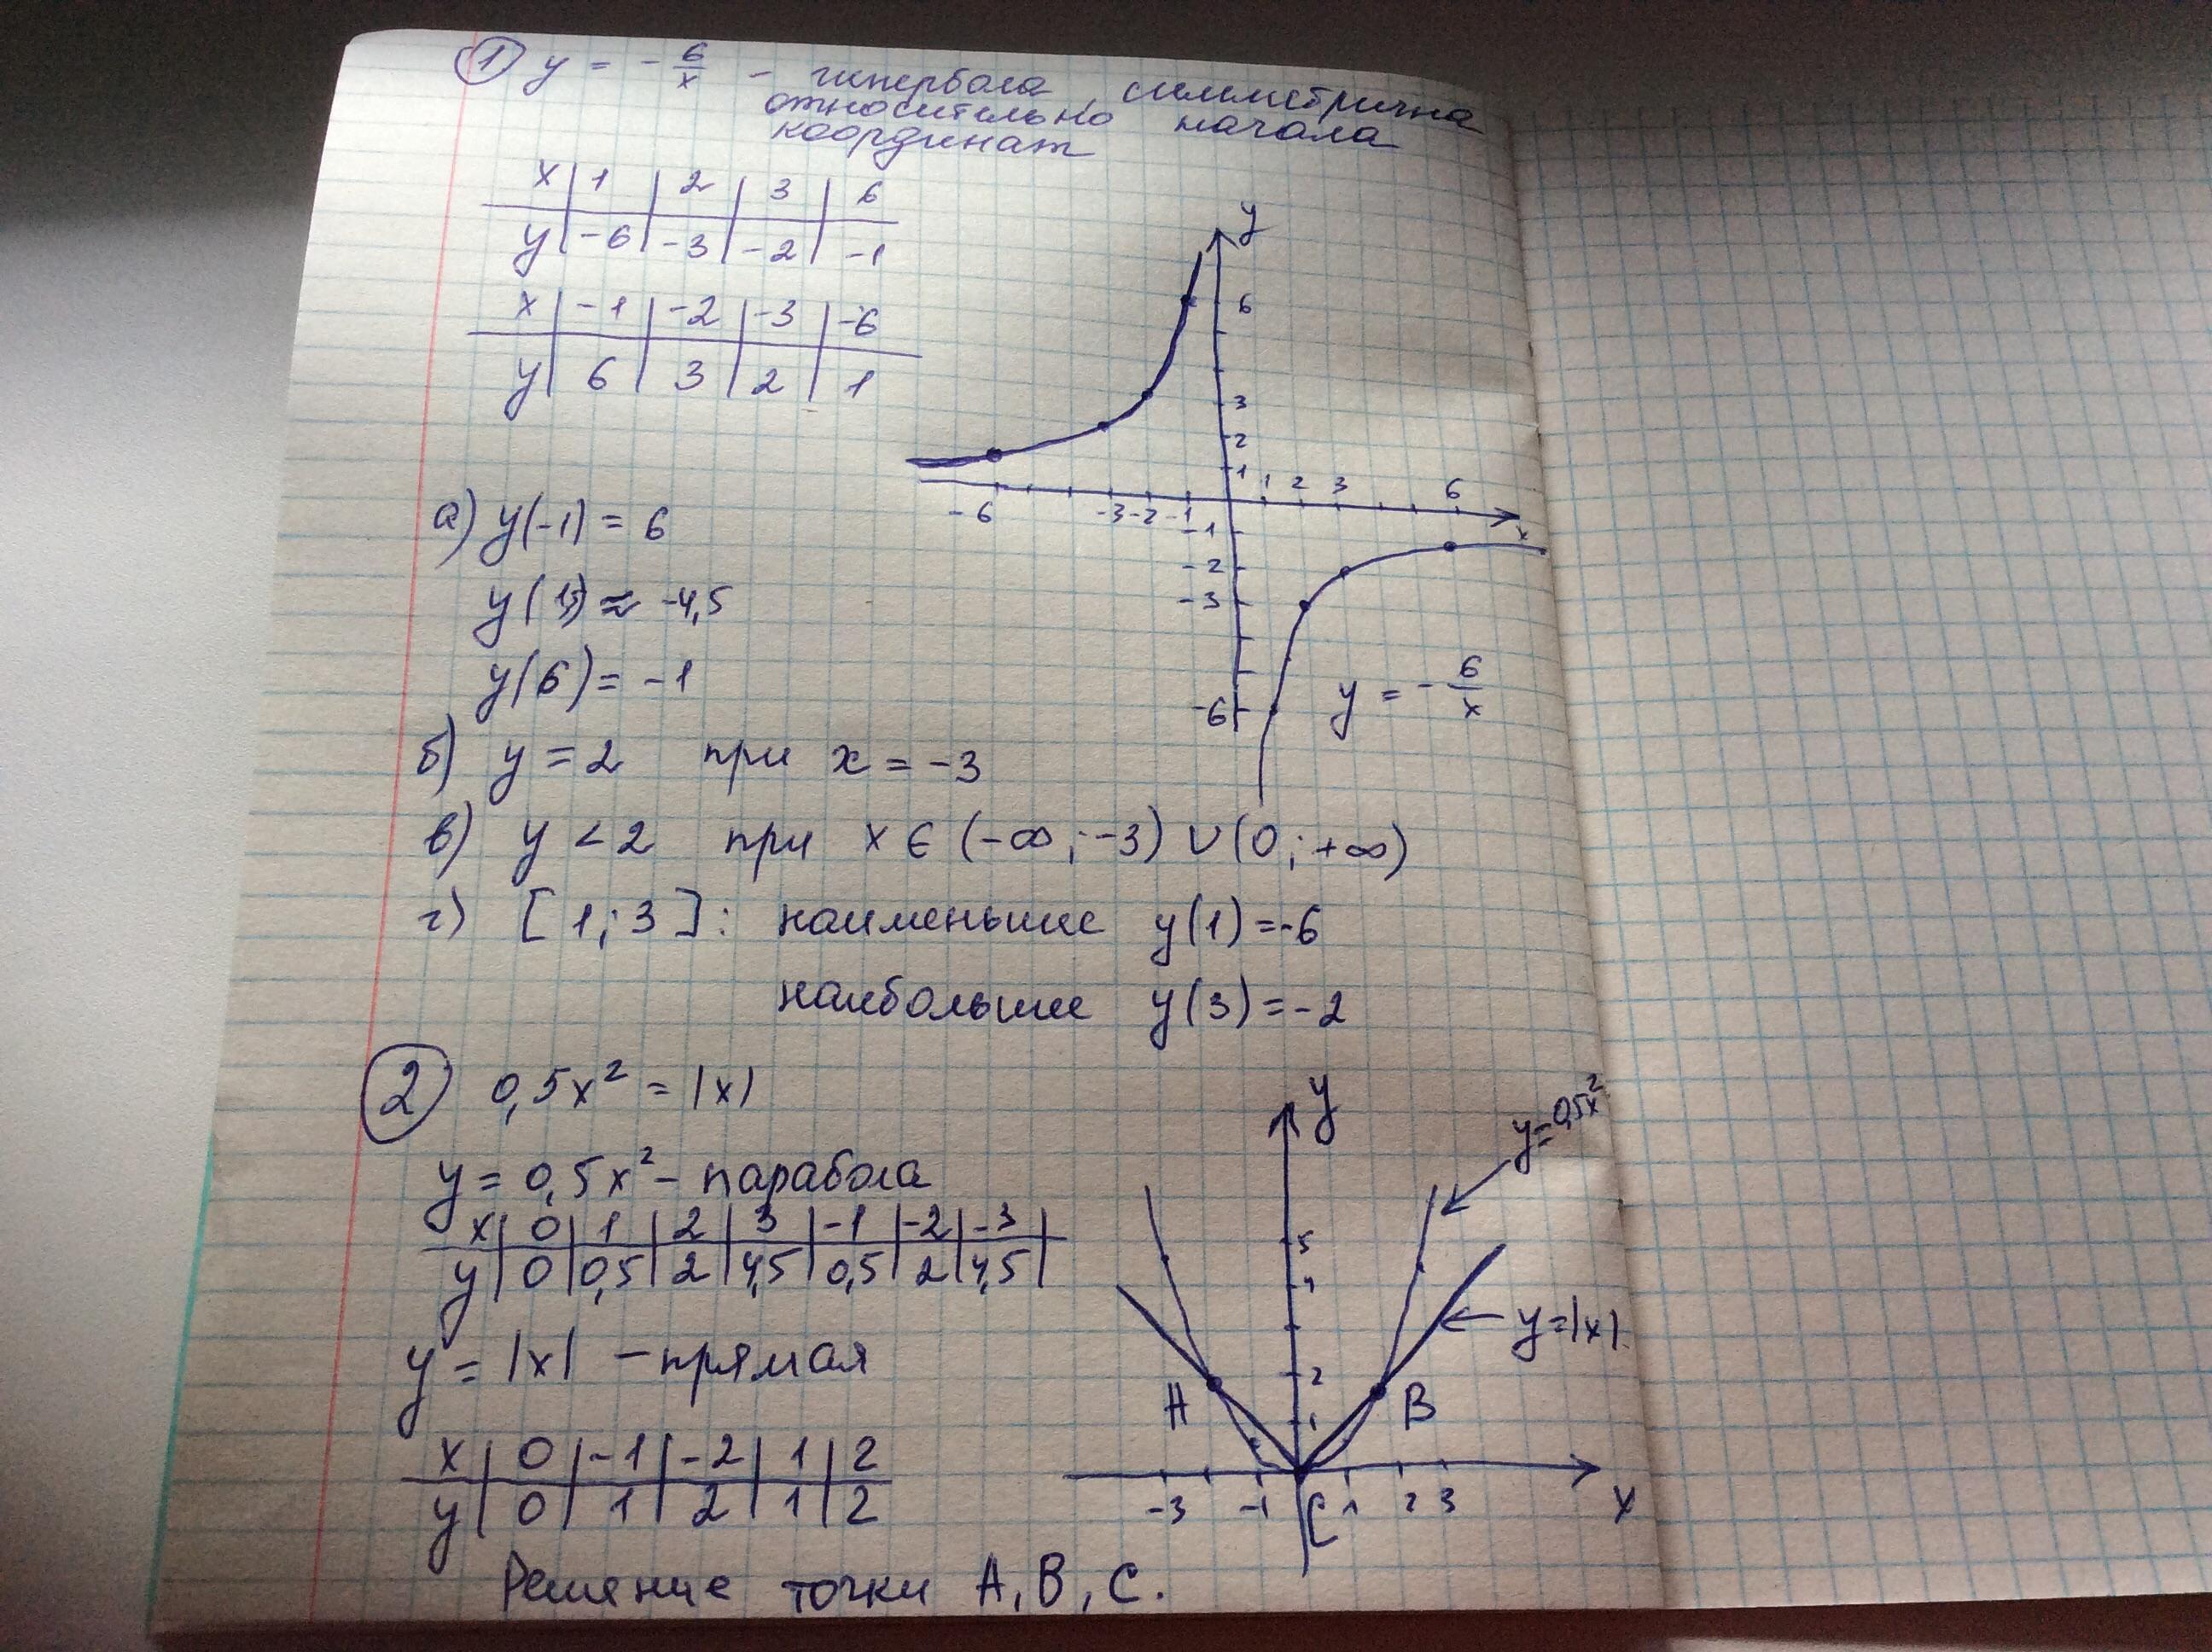 ① y = - 6/x – гипербола, симметрична
относительно начала
координат
x | 1 | 2 | 3 | 6
y | -6 | -3 | -2 | -1
x | -1 | -2 | -3 | -6
y | 6 | 3 | 2 | 1
y
6
3
2
1
1 2 3 6
-6 -3 -2 -1
x
-1
-2
-3
-6
y = - 6/x
а) y(-1) = 6
y( ) ≈ -4,5
y(6) = -1
б) y = 2 при x = -3
в) y < 2 при x ∈ (-∞; -3) ∪ (0; +∞)
г) [1; 3]: наименьшее y(1) = -6
наибольшее y(3) = -2
② 0,5x² = |x|
y = 0,5x² – парабола
x | 0 | 1 | 2 | 3 | -1 | -2 | -3 |
y | 0 | 0,5 | 2 | 4,5 | 0,5 | 2 | 4,5 |
y = |x| – прямая
x | 0 | -1 | -2 | 1 | 2
y | 0 | 1 | 2 | 1 | 2
y
y=0,5x²
5
4
y=|x|
2
A B
1
-3 -1 C 1 2 3 x
Решение точки A, B, C.